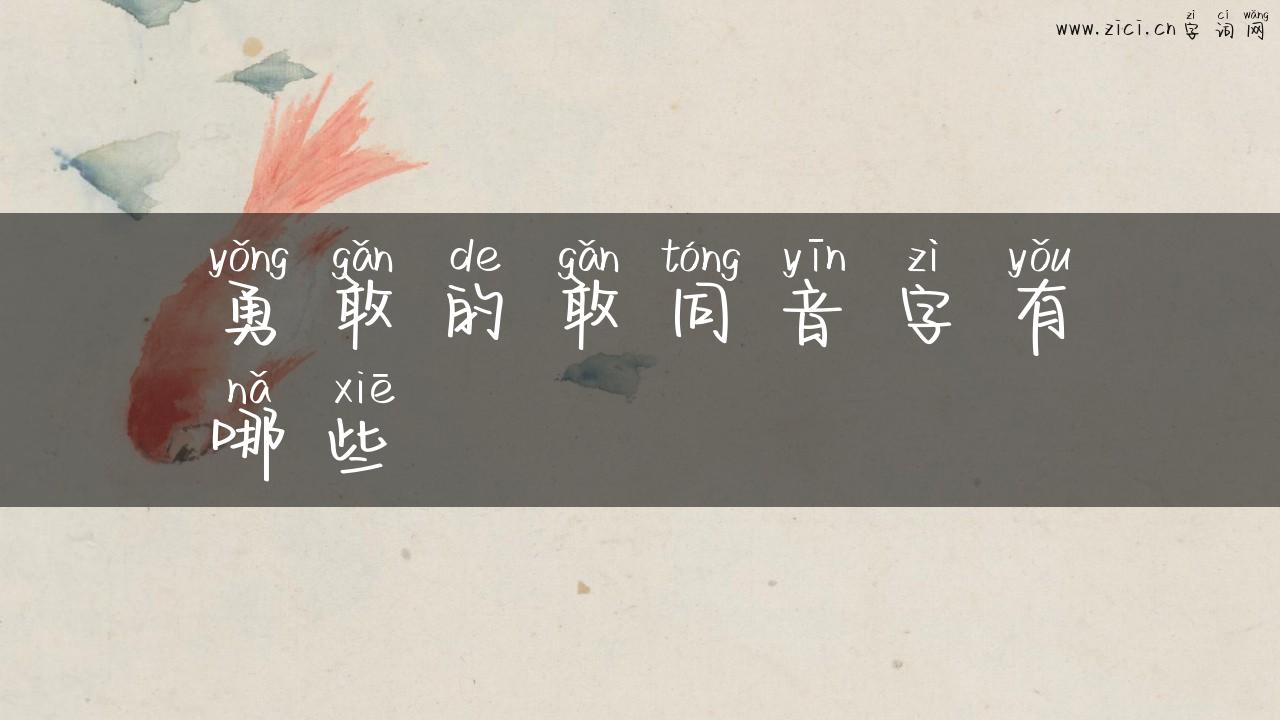 zì cí wǎng
www.zici.cn 字 词 网
yǒng gǎn de gǎn tóng yīn zì yǒu
勇 敢 的 敢 同 音 字 有
nǎ xiē
哪 些